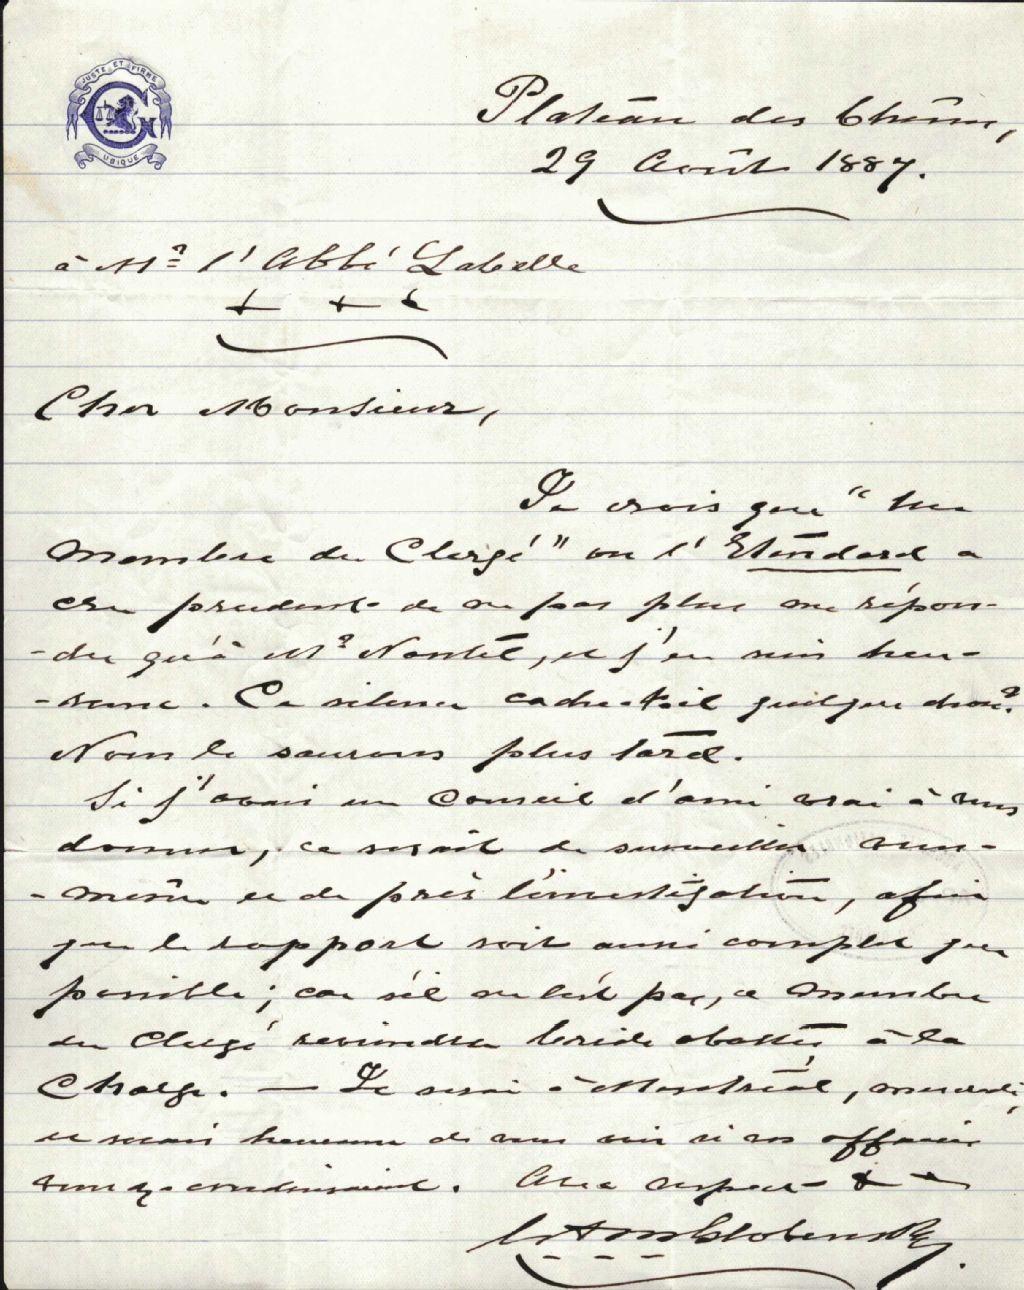 JUSTE ET FIRME
UBIQUE
Plateau des Chênes,
29 Août 1887.
à Mr l'Abbé Labelle
Cher Monsieur,
Je crois que "un
Membre du Clergé" ou l'Étendard a
cru prudent de ne pas plus me répon-
-dre qu'à Mr Nantel, et j'en suis heu-
-reux. Ce silence cache-t-il quelque chose?
Nous le saurons plus tard.
Si j'avais un Conseil d'ami vrai à vous
donner, ce serait de surveiller vous-
-même et de près l'investigation, afin
que le rapport soit aussi complet que
possible; car s'il ne l'est pas, ce Membre
du Clergé reviendra bride abattue à la
Charge. — Je serai à Montréal, mercredi,
et serais heureux de vous voir si vos affaires
vous y conduisaient. Avec respect
Globensky.